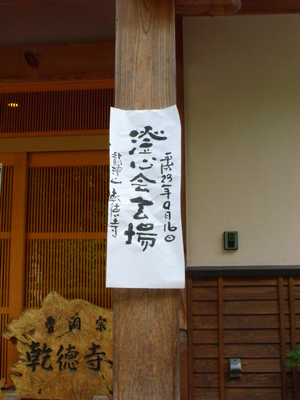 平成23年9月16日
澄心会会場
龍澤山 乾徳寺
曹洞宗
乾徳寺